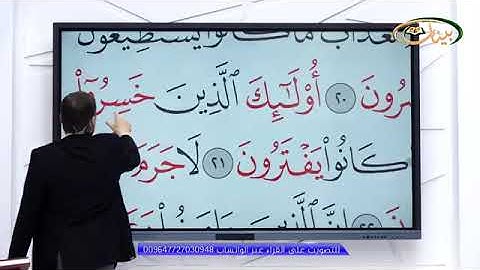 بينات
لعذاب ما كانوا يستطيعون
صرون ٢٠ أُو۟لَـٰٓئِكَ ٱلَّذِينَ خَسِرُوٓا۟
كَانُوا۟ يَفْتَرُونَ ٢١ لَا جَرَمَ
ن ٢٢ إِنَّ ٱلَّذِينَ
للتصويت على القراء عبر الواتساب 009647727030948